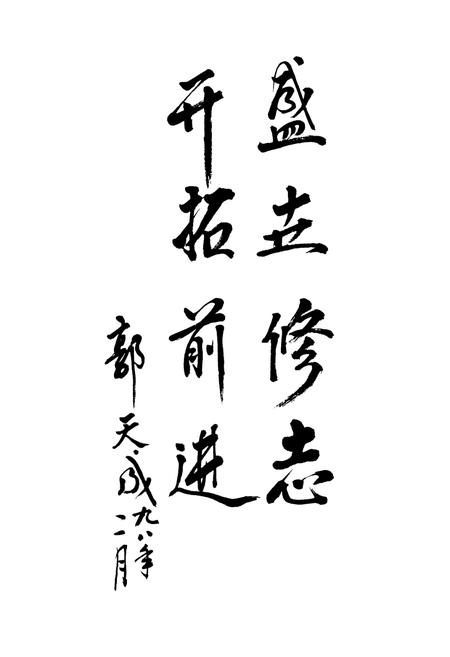 盛世修志
开拓前进
郭天成
九八年
二月